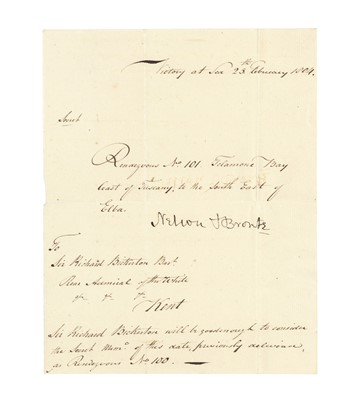 Victory at Sea 23th February 1804.
Secret
Rendezvous No 101 Telamone Bay
Coast of Tuscany, to the South East of
Elba.
Nelson & Bronte
To
Sir Richard Bickerton Bart
Rear Admiral of the White
&c &c &c
Kent
Sir Richard Bickerton will be good enough to consider
the Secret Memo of this date, previously delivered,
as Rendezvous No 100.